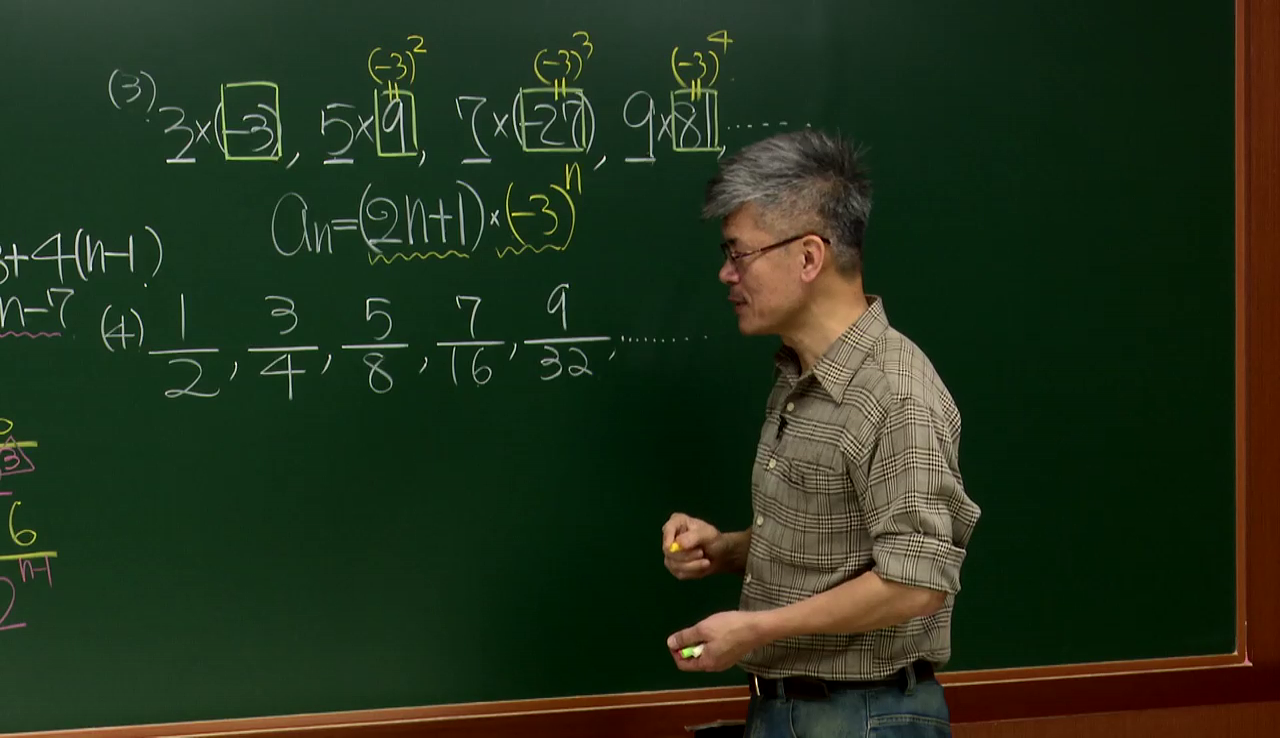 (-3)² (-3)³ (-3)⁴
(3) 3×(-3), 5×9, 7×(-27), 9×81, ……
aₙ=(2n+1)×(-3)ⁿ
+4(n-1)
n-7
(4) 1/2, 3/4, 5/8, 7/16, 9/32, ……
3
6
2ⁿ⁻¹